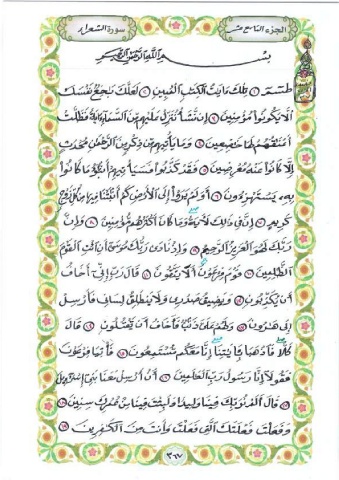 سورة الشعراء الجزء التاسع عشر
بسم الله الرحمن الرحيم
طسم ١ تلك ءايت الكتب المبين ٢ لعلك بخع نفسك
ألا يكونوا مؤمنين ٣ إن نشأ ننزل عليهم من السماء ءاية فظلت
أعنقهم لها خضعين ٤ وما يأتيهم من ذكر من الرحمن محدث
إلا كانوا عنه معرضين ٥ فقد كذبوا فسيأتيهم أنبؤا ما كانوا
به يستهزءون ٦ أولم يروا إلى الأرض كم أنبتنا فيها من كل زوج
كريم ٧ إن في ذلك لأية وما كان أكثرهم مؤمنين ٨ وإن
ربك لهو العزيز الرحيم ٩ وإذ نادى ربك موسى أن ائت القوم
الظلمين ١٠ قوم فرعون ألا يتقون ١١ قال رب إني أخاف
أن يكذبون ١٢ ويضيق صدري ولا ينطلق لساني فأرسل
إلى هرون ١٣ ولهم علي ذنب فأخاف أن يقتلون ١٤ قال
كلا فاذهبا بءايتنا إنا معكم مستمعون ١٥ فأتيا فرعون
فقولا إنا رسول رب العلمين ١٦ أن أرسل معنا بني إسرءيل
١٧ قال ألم نربك فينا وليدا ولبثت فينا من عمرك سنين ١٨
وفعلت فعلتك التي فعلت وأنت من الكفرين ١٩
٣٦٧